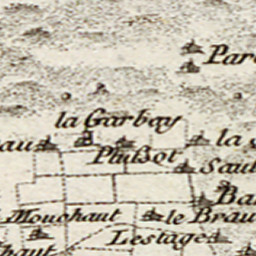 Par
la Garbay
au
la
Plußot
Saut
Ba
Mouchaut
le Brau
Lestage
haut